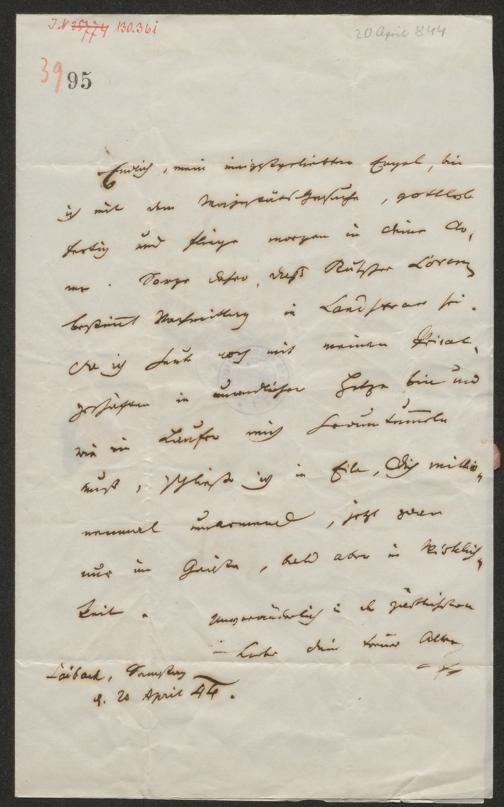 J.N. 130.361
20 April 844
39 95
Endlich, mein innigstgeliebter Engel, bin
ich mit dem Majestäts-Gesuche, gottlob
fertig und fliege morgen in deine Ar,
me. Sorge dafür, daß
bestimmt Nachmittag in sei.
Da ich heut noch mit meinen Privat,
geschäften in unendlicher Hetze bin und
wie ein Laufer mich herumtummeln
muß, schließe ich in Eile, Dich millio,
nenmal umarmend, jetzt zwar
nur im Geiste, bald aber in Wirklich,
keit. Unveränderlich in der zärtlichsten
Liebe dein treuer
Laibach, Samstag
d. 20 April 44.